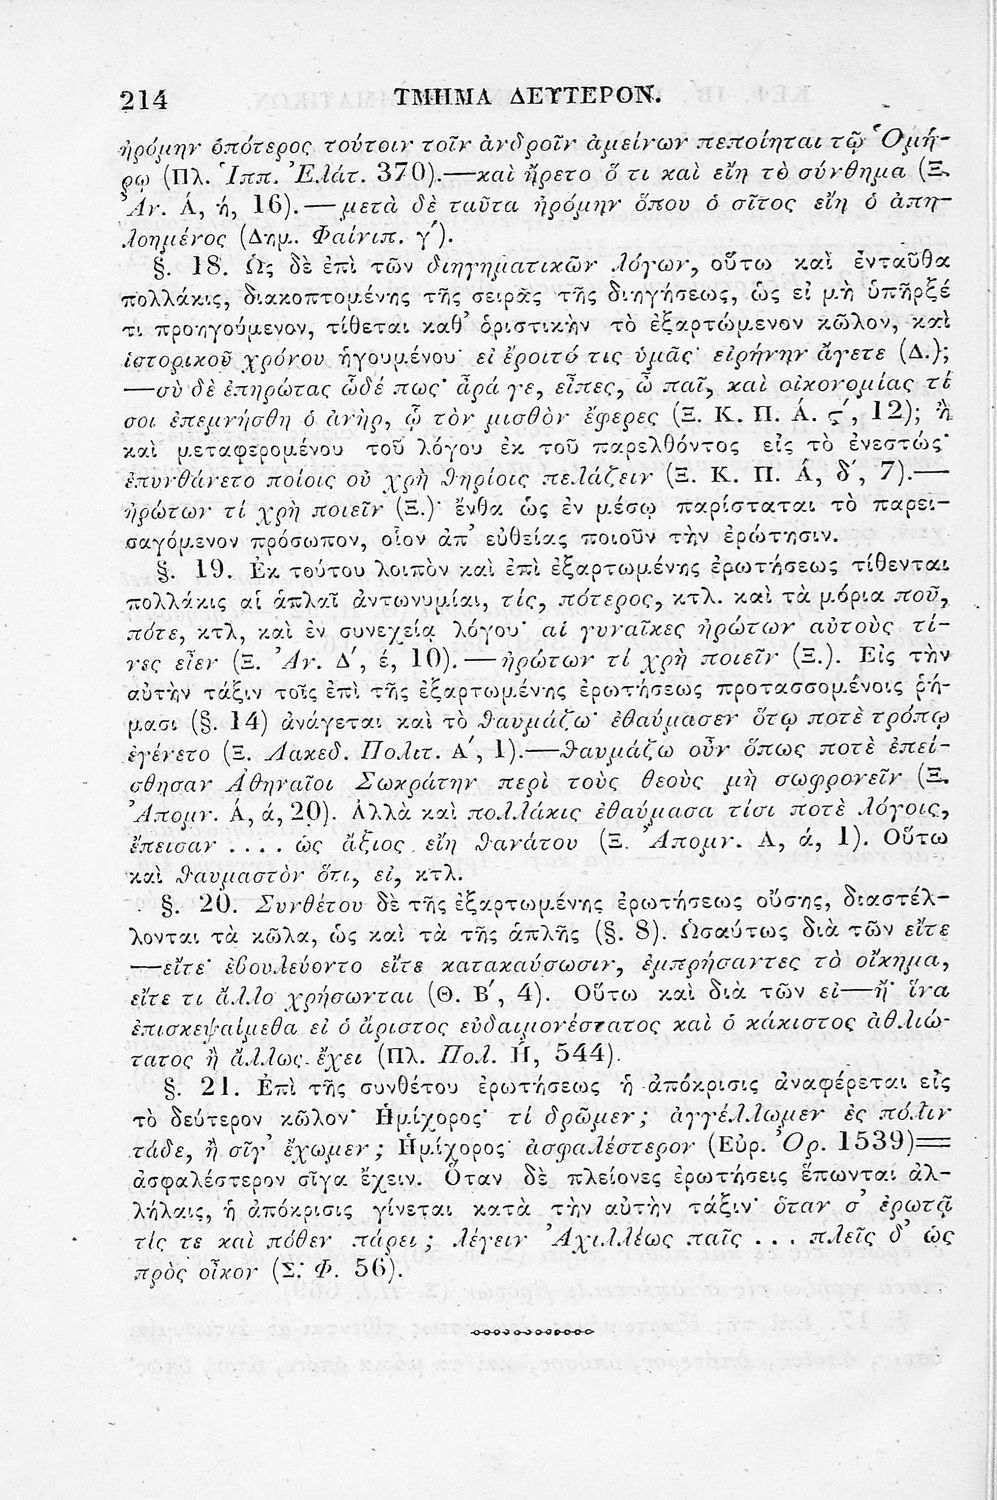 214 ΤΜΗΜΑ ΔΕΥΤΕΡΟΝ.
ἠρόμην ὁπότερος τούτοιν τοῖν ἀνδροῖν ἀμείνων πεποίηται τῷ Ὁμή-
ρῳ (Πλ. Ἱππ. Ἐλάτ. 370).—καὶ ἤρετο ὅ τι καὶ εἴη τὸ σύνθημα (Ξ.
Ἀν. Ά, ή, 16).—μετὰ δὲ ταῦτα ἠρόμην ὅπου ὁ σῖτος εἴη ὁ ἀπη-
λοημένος (Δημ. Φαίνιπ. γ΄).
§. 18. Ὡς δὲ ἐπὶ τῶν διηγηματικῶν λόγων, οὕτω καὶ ἐνταῦθα
πολλάκις, διακοπτομένης τῆς σειρᾶς τῆς διηγήσεως, ὡς εἰ μὴ ὑπῆρξέ
τι προηγούμενον, τίθεται καθ᾽ ὁριστικὴν τὸ ἐξαρτώμενον κῶλον, καὶ
ἱστορικοῦ χρόνου ἡγουμένου· εἰ ἔροιτό τις ὑμᾶς· εἰρήνην ἄγετε (Δ.);
—σὺ δὲ ἐπηρώτας ὧδέ πως· ἆρά γε, εἶπες, ὦ παῖ, καὶ οἰκονομίας τί
σοι ἐπεμνήσθη ὁ ἀνὴρ, ᾧ τὸν μισθὸν ἔφερες (Ξ. Κ. Π. Ά. ς΄, 12); ἢ
καὶ μεταφερομένου τοῦ λόγου ἐκ τοῦ παρελθόντος εἰς τὸ ἐνεστώς·
ἐπυνθάνετο ποίοις οὐ χρὴ θηρίοις πελάζειν (Ξ. Κ. Π. Ά, δ΄, 7).—
ἠρώτων τί χρὴ ποιεῖν (Ξ.)· ἔνθα ὡς ἐν μέσῳ παρίσταται τὸ παρει-
σαγόμενον πρόσωπον, οἷον ἀπ᾽ εὐθείας ποιοῦν τὴν ἐρώτησιν.
§. 19. Ἐκ τούτου λοιπὸν καὶ ἐπὶ ἐξαρτωμένης ἐρωτήσεως τίθενται
πολλάκις αἱ ἁπλαῖ ἀντωνυμίαι, τίς, πότερος, κτλ. καὶ τὰ μόρια ποῦ,
πότε, κτλ, καὶ ἐν συνεχείᾳ λόγου· αἱ γυναῖκες ἠρώτων αὐτοὺς τί-
νες εἶεν (Ξ. Ἀν. Δ΄, έ, 10).—ἠρώτων τί χρὴ ποιεῖν (Ξ.). Εἰς τὴν
αὐτὴν τάξιν τοῖς ἐπὶ τῆς ἐξαρτωμένης ἐρωτήσεως προτασσομένοις ῥή-
μασι (§. 14) ἀνάγεται καὶ τὸ θαυμάζω· ἐθαύμασεν ὅτῳ ποτὲ τρόπῳ
ἐγένετο (Ξ. Λακεδ. Πολιτ. Α΄, 1).—θαυμάζω οὖν ὅπως ποτὲ ἐπεί-
σθησαν Ἀθηναῖοι Σωκράτην περὶ τοὺς θεοὺς μὴ σωφρονεῖν (Ξ.
Ἀπομν. Ά, ά, 20). Ἀλλὰ καὶ πολλάκις ἐθαύμασα τίσι ποτὲ λόγοις,
ἔπεισαν .... ὡς ἄξιος εἴη θανάτου (Ξ. Ἀπομν. Α, ά, 1). Οὕτω
καὶ θαυμαστὸν ὅτι, εἰ, κτλ.
§. 20. Συνθέτου δὲ τῆς ἐξαρτωμένης ἐρωτήσεως οὔσης, διαστέλ-
λονται τὰ κῶλα, ὡς καὶ τὰ τῆς ἁπλῆς (§. 8). Ὡσαύτως διὰ τῶν εἴτε
—εἴτε· ἐβουλεύοντο εἴτε κατακαύσωσιν, ἐμπρήσαντες τὸ οἴκημα,
εἴτε τι ἄλλο χρήσωνται (Θ. Β΄, 4). Οὕτω καὶ διὰ τῶν εἰ—ἤ· ἵνα
ἐπισκεψαίμεθα εἰ ὁ ἄριστος εὐδαιμονέστατος καὶ ὁ κάκιστος ἀθλιώ-
τατος ἢ ἄλλως ἔχει (Πλ. Πολ. Ή, 544).
§. 21. Ἐπὶ τῆς συνθέτου ἐρωτήσεως ἡ ἀπόκρισις ἀναφέρεται εἰς
τὸ δεύτερον κῶλον· Ἡμίχορος· τί δρῶμεν; ἀγγέλλωμεν ἐς πόλιν
τάδε, ἢ σῖγ᾽ ἔχωμεν; Ἡμίχορος· ἀσφαλέστερον (Εὐρ. Ὀρ. 1539)=
ἀσφαλέστερον σῖγα ἔχειν. Ὅταν δὲ πλείονες ἐρωτήσεις ἕπωνται ἀλ-
λήλαις, ἡ ἀπόκρισις γίνεται κατὰ τὴν αὐτὴν τάξιν· ὅταν σ᾽ ἐρωτᾷ
τίς τε καὶ πόθεν πάρει; λέγειν Ἀχιλλέως παῖς ... πλεῖς δ᾽ ὡς
πρὸς οἶκον (Σ. Φ. 56).